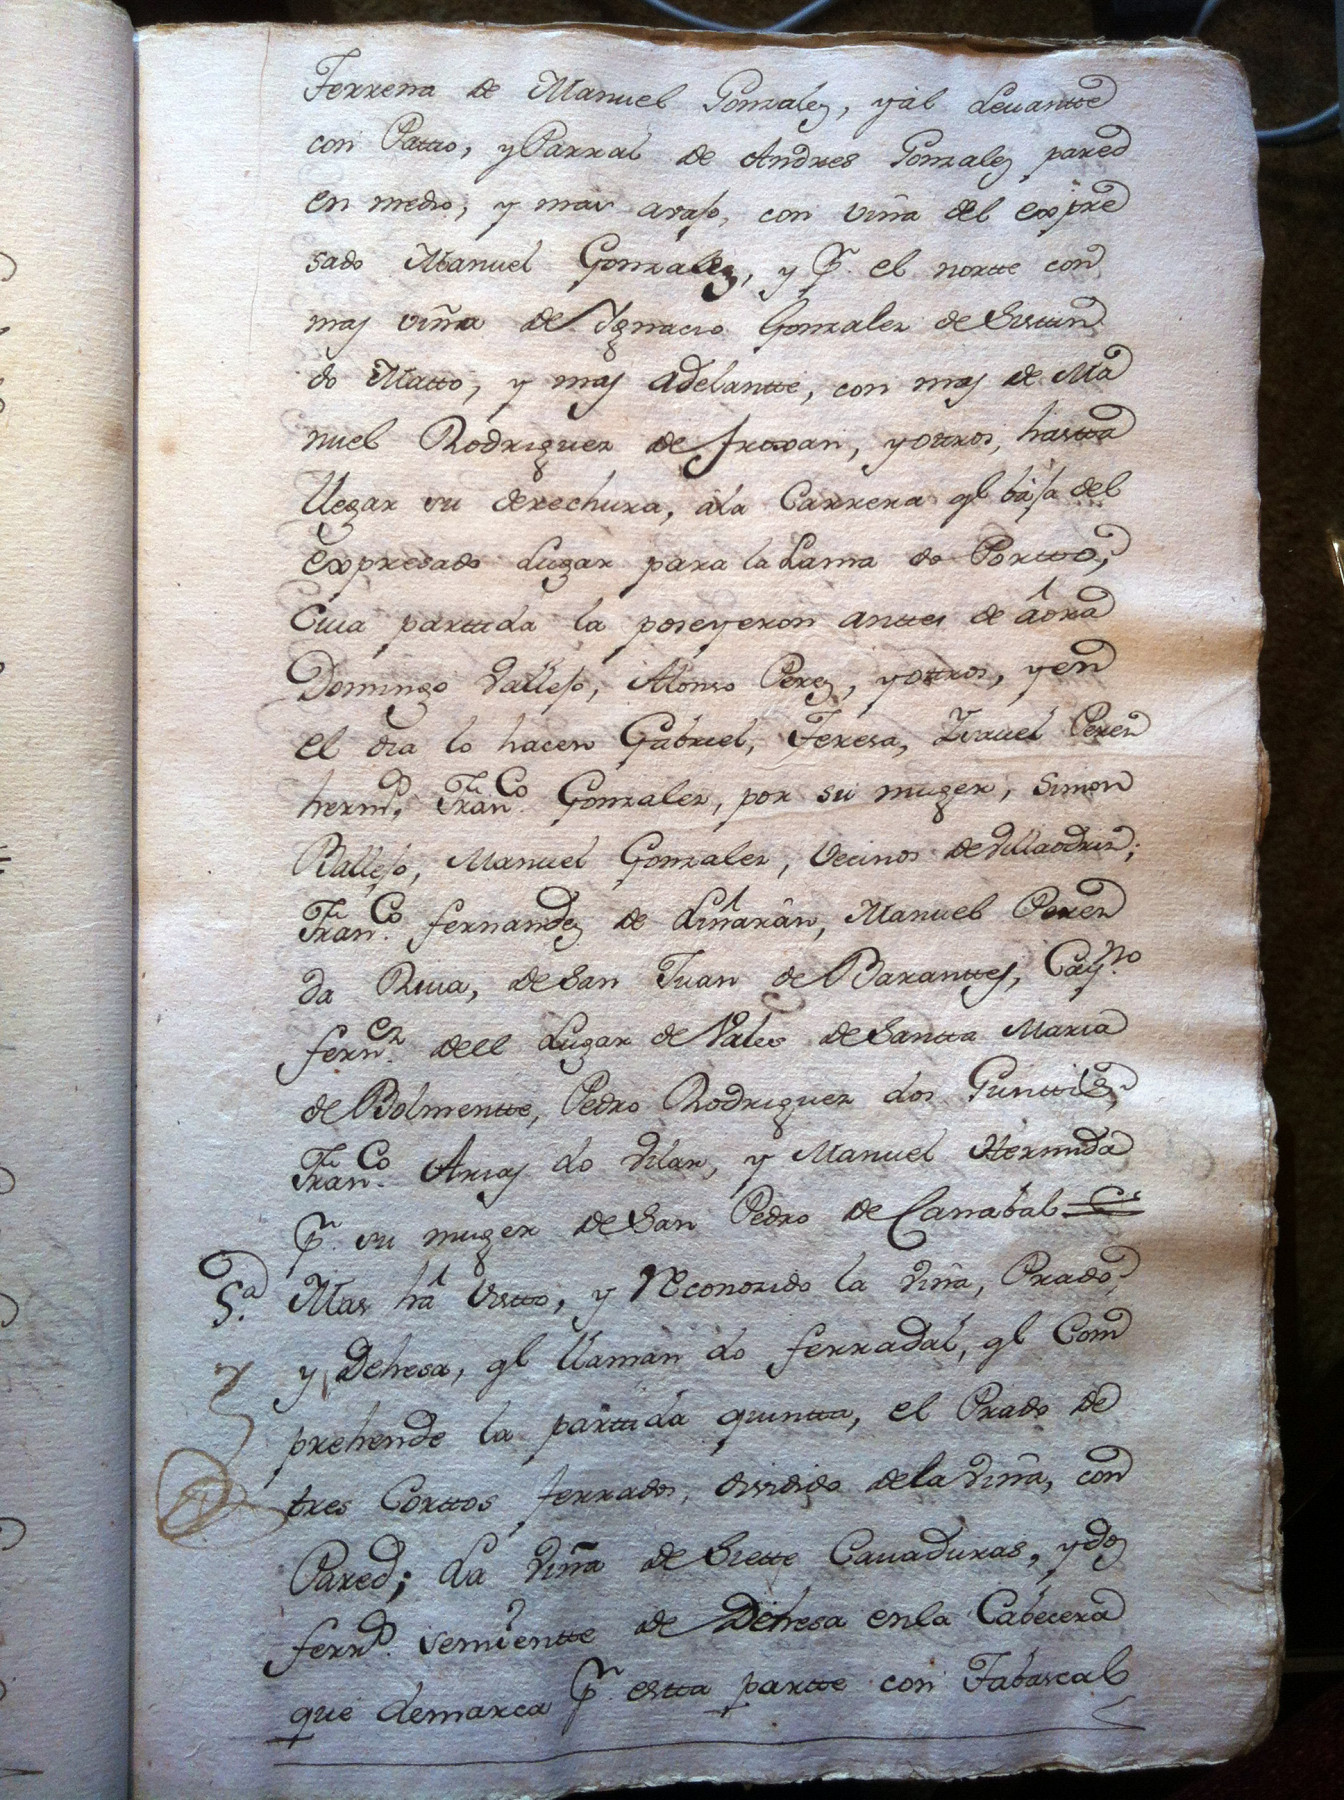 Terrena de Manuel Gonzalez, y al Levantte
con Pattio, y Parral de Andres Gonzalez pared
en medio, y mas avajo, con viña del expre
sado Manuel Gonzalez, y Pr. el nortte con
mas viña de Ygnacio Gonzalez de Susttan
do Matto, y mas adelantte, con mas de Ma
nuel Rodriguez de froxan, y ottros, hastta
llegar su derechura, ala Carrera ql baja del
expresado Lugar para la Lama do Portto,
Cuia parttida la poseyeron anttes de áora
Domingo Vallejo, Alonso Perez, y ottros, y en
el dia lo hacen Gabriel, Teresa, Ysavel Perez
hermos. Franco. Gonzalez, por su muger, Simon
Ballejo, Manuel Gonzalez, Vecinos de Villaodriz;
Franco. fernandez de Liñarán, Manuel Perez
da Riva, de San Juan de Baranttes, Cayno.
fernez. dell Lugar de Vales de Santta Maria
de Bolmentte, Pedro Rodriguez dos Gunttis,
Franco. Arias do Vilar, y Manuel Hermida
Pr. su muger de San Pedro de Canabal
5.a Mas há Vistto, y reconocido la Viña, Prado,
y Dehesa, ql llaman do ferradal, ql Com
prehende la parttida quintta, el Prado de
tres Corttos ferrados, dividido de la Viña, con
Pared; La Viña de Siette Cavaduras, y dos
ferrds. semientte de Dehesa en la Cabecera
que demarca Pr. estta partte con Tabascal